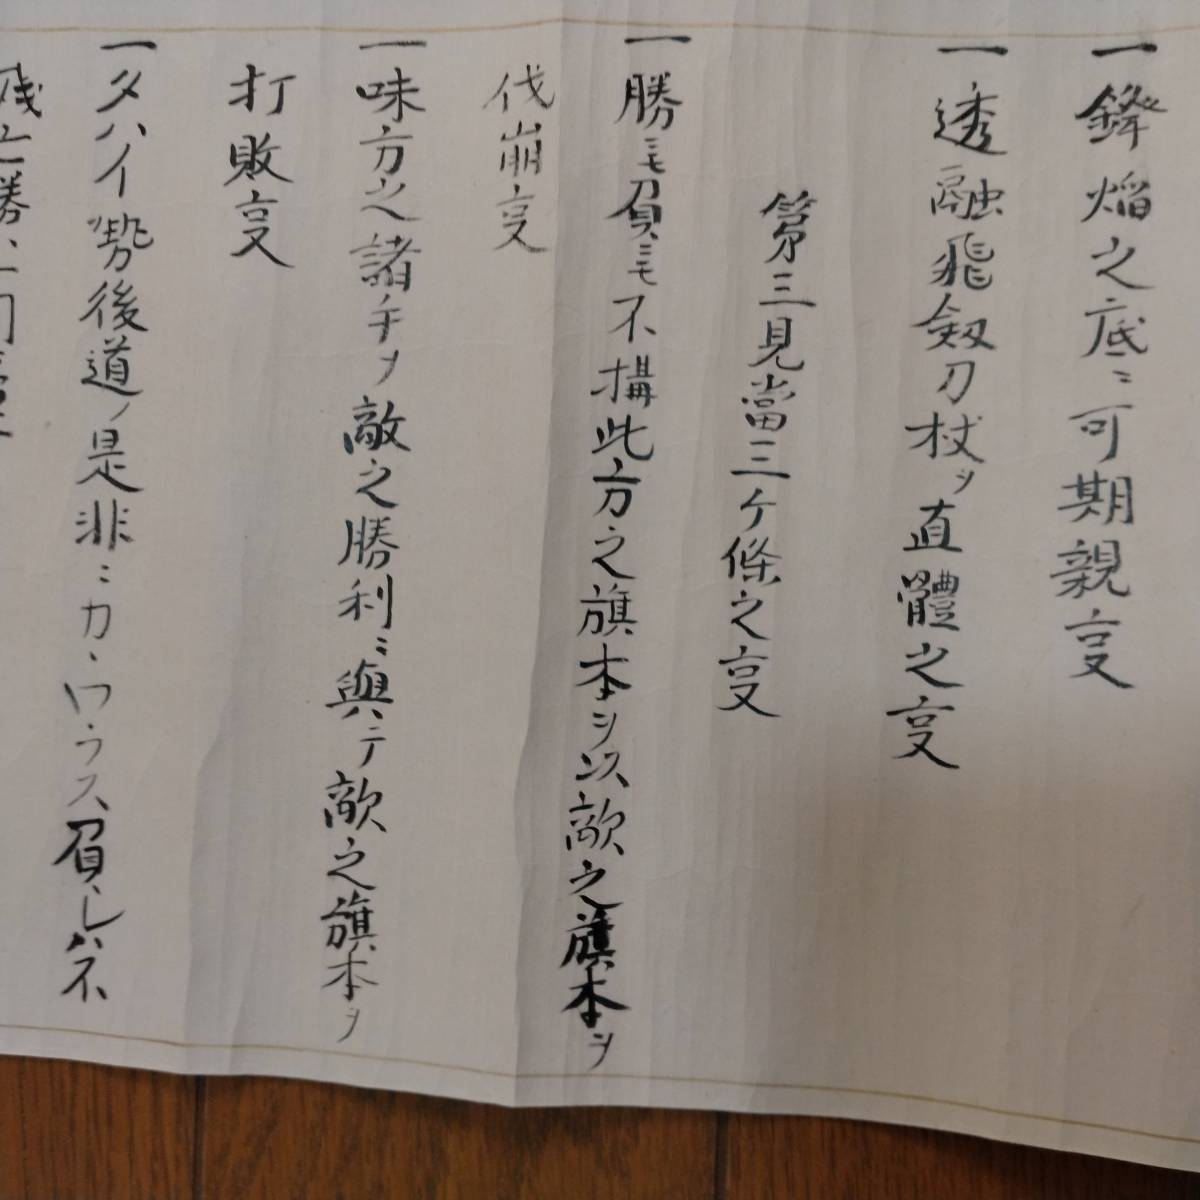 一鋒焔之底ニ可期親叓
一透融飛剱刀杖ヲ直體之叓
第三見當三ケ條之叓
一勝ニモ負ニモ不搆此方之旗本ヲ以敵之旗本ヲ
伐崩叓
一味方之諸手ヲ敵之勝利ニ與ハテ敵之旗本ヲ
打敗叓
一タハイ勢後道ノ是非ニカヽワラス負レハ不
残亡勝ハ一同